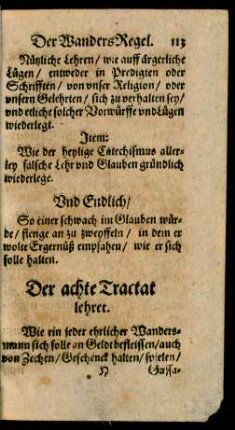 Der Wanders Regel. 113
Nützliche Lehren / wie auff ärgerliche
Lügen / entweder in Predigten oder
Schrifften / von vnser Religion / oder
vnsern Gelehrten / sich zu verhalten sey /
vnd etliche solcher Vorwürffe vnd Lügen
wiederlegt.
Item:
Wie der heylige Catechismus aller-
ley falsche Lehr vnd Glauben gründlich
wiederlege.
Vnd Endlich /
So einer schwach im Glauben wür-
de / fienge an zu zweyffeln / in dem er
wolte Ergernüß empfahen / wie er sich
solle halten.
Der achte Tractat
lehret.
Wie ein jeder ehrlicher Wanders-
mann sich solle an Geldt befleissen / auch
von Zechen / Geschenck halten / spielen /
H